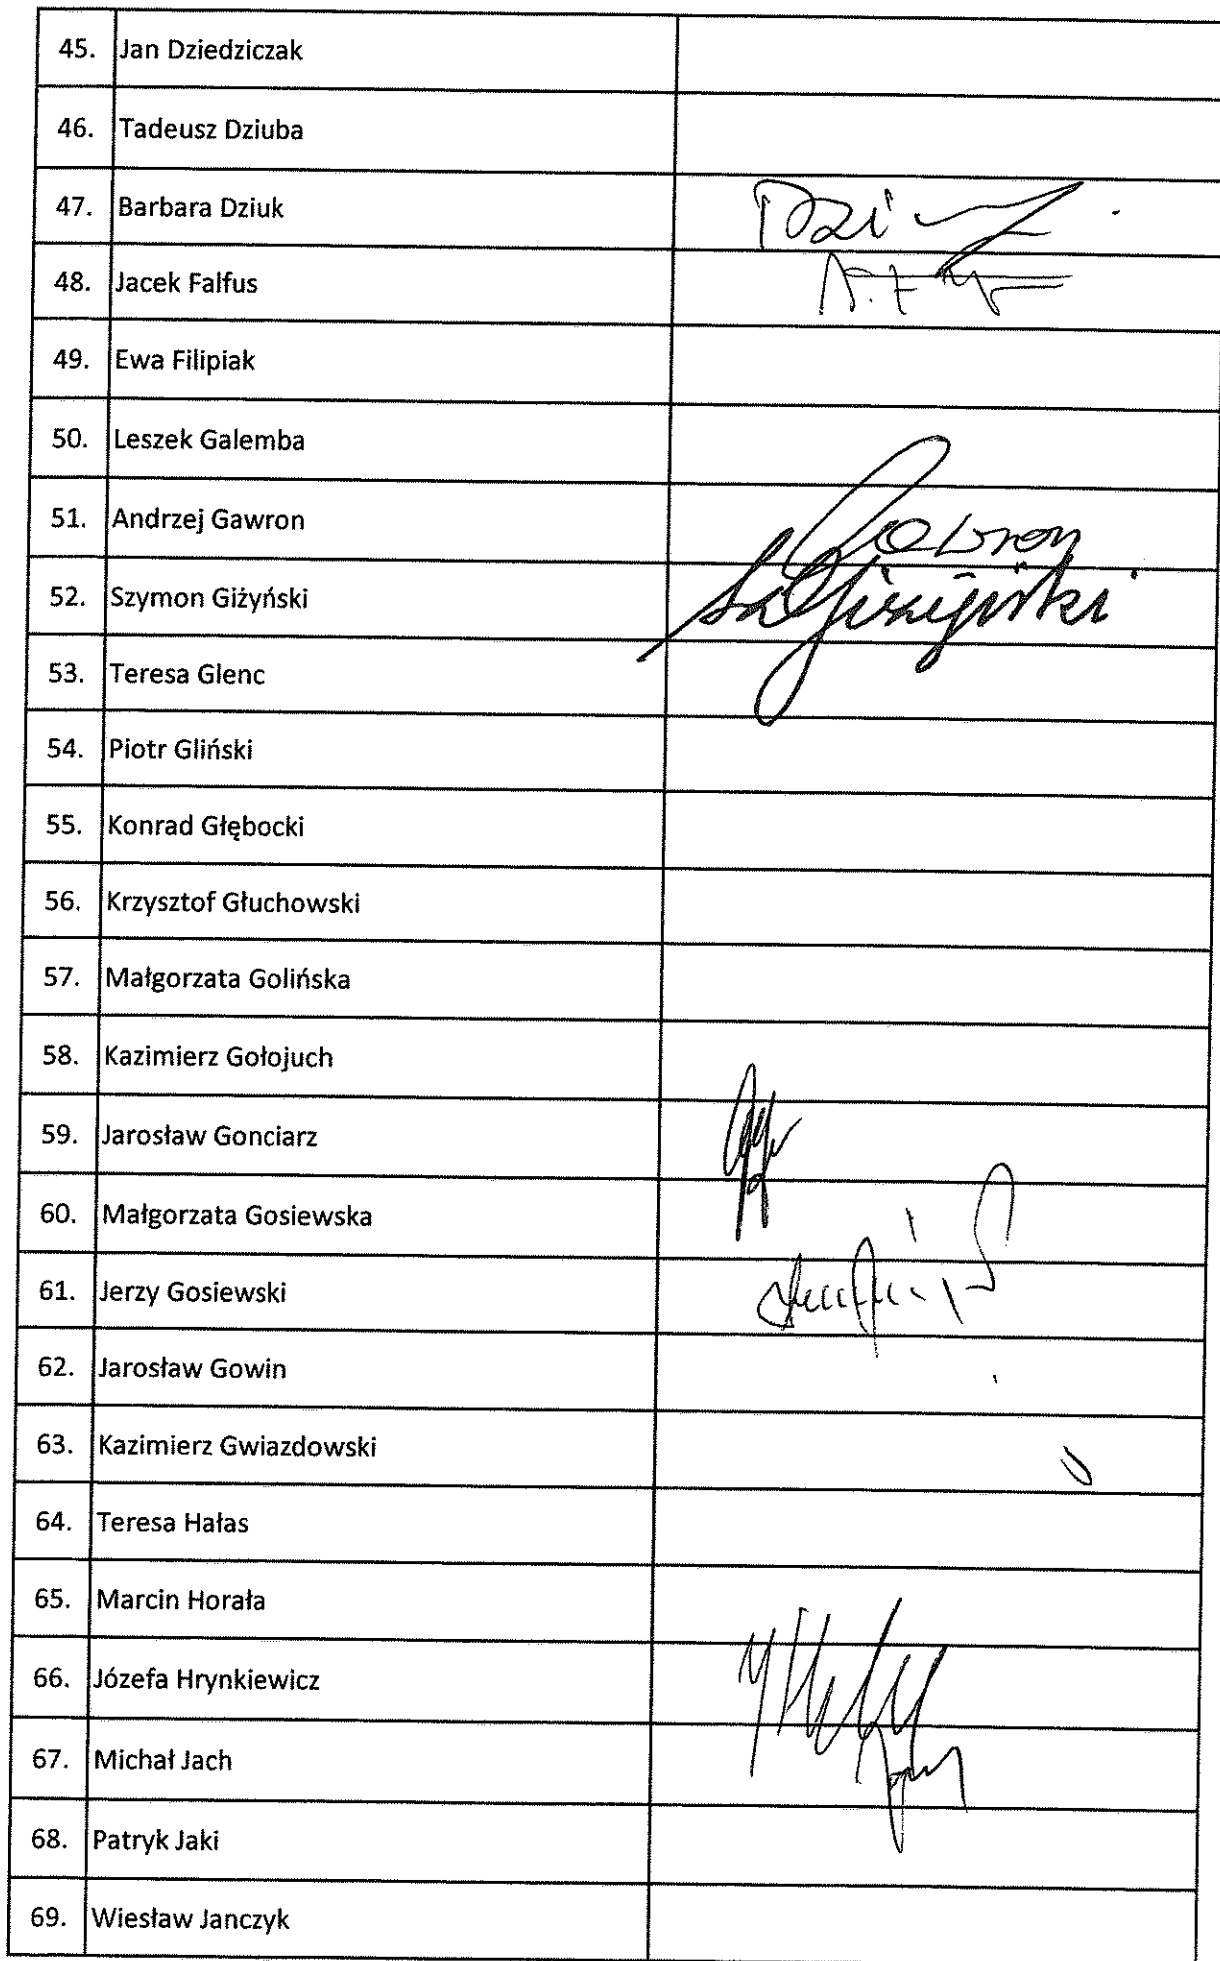 45. Jan Dziedziczak
46. Tadeusz Dziuba
47. Barbara Dziuk
48. Jacek Falfus
49. Ewa Filipiak
50. Leszek Galemba
51. Andrzej Gawron Gawron
52. Szymon Giżyński Sz Giżyński
53. Teresa Glenc
54. Piotr Gliński
55. Konrad Głębocki
56. Krzysztof Głuchowski
57. Małgorzata Golińska
58. Kazimierz Gołojuch
59. Jarosław Gonciarz
60. Małgorzata Gosiewska
61. Jerzy Gosiewski
62. Jarosław Gowin
63. Kazimierz Gwiazdowski
64. Teresa Hałas
65. Marcin Horała
66. Józefa Hrynkiewicz
67. Michał Jach
68. Patryk Jaki
69. Wiesław Janczyk